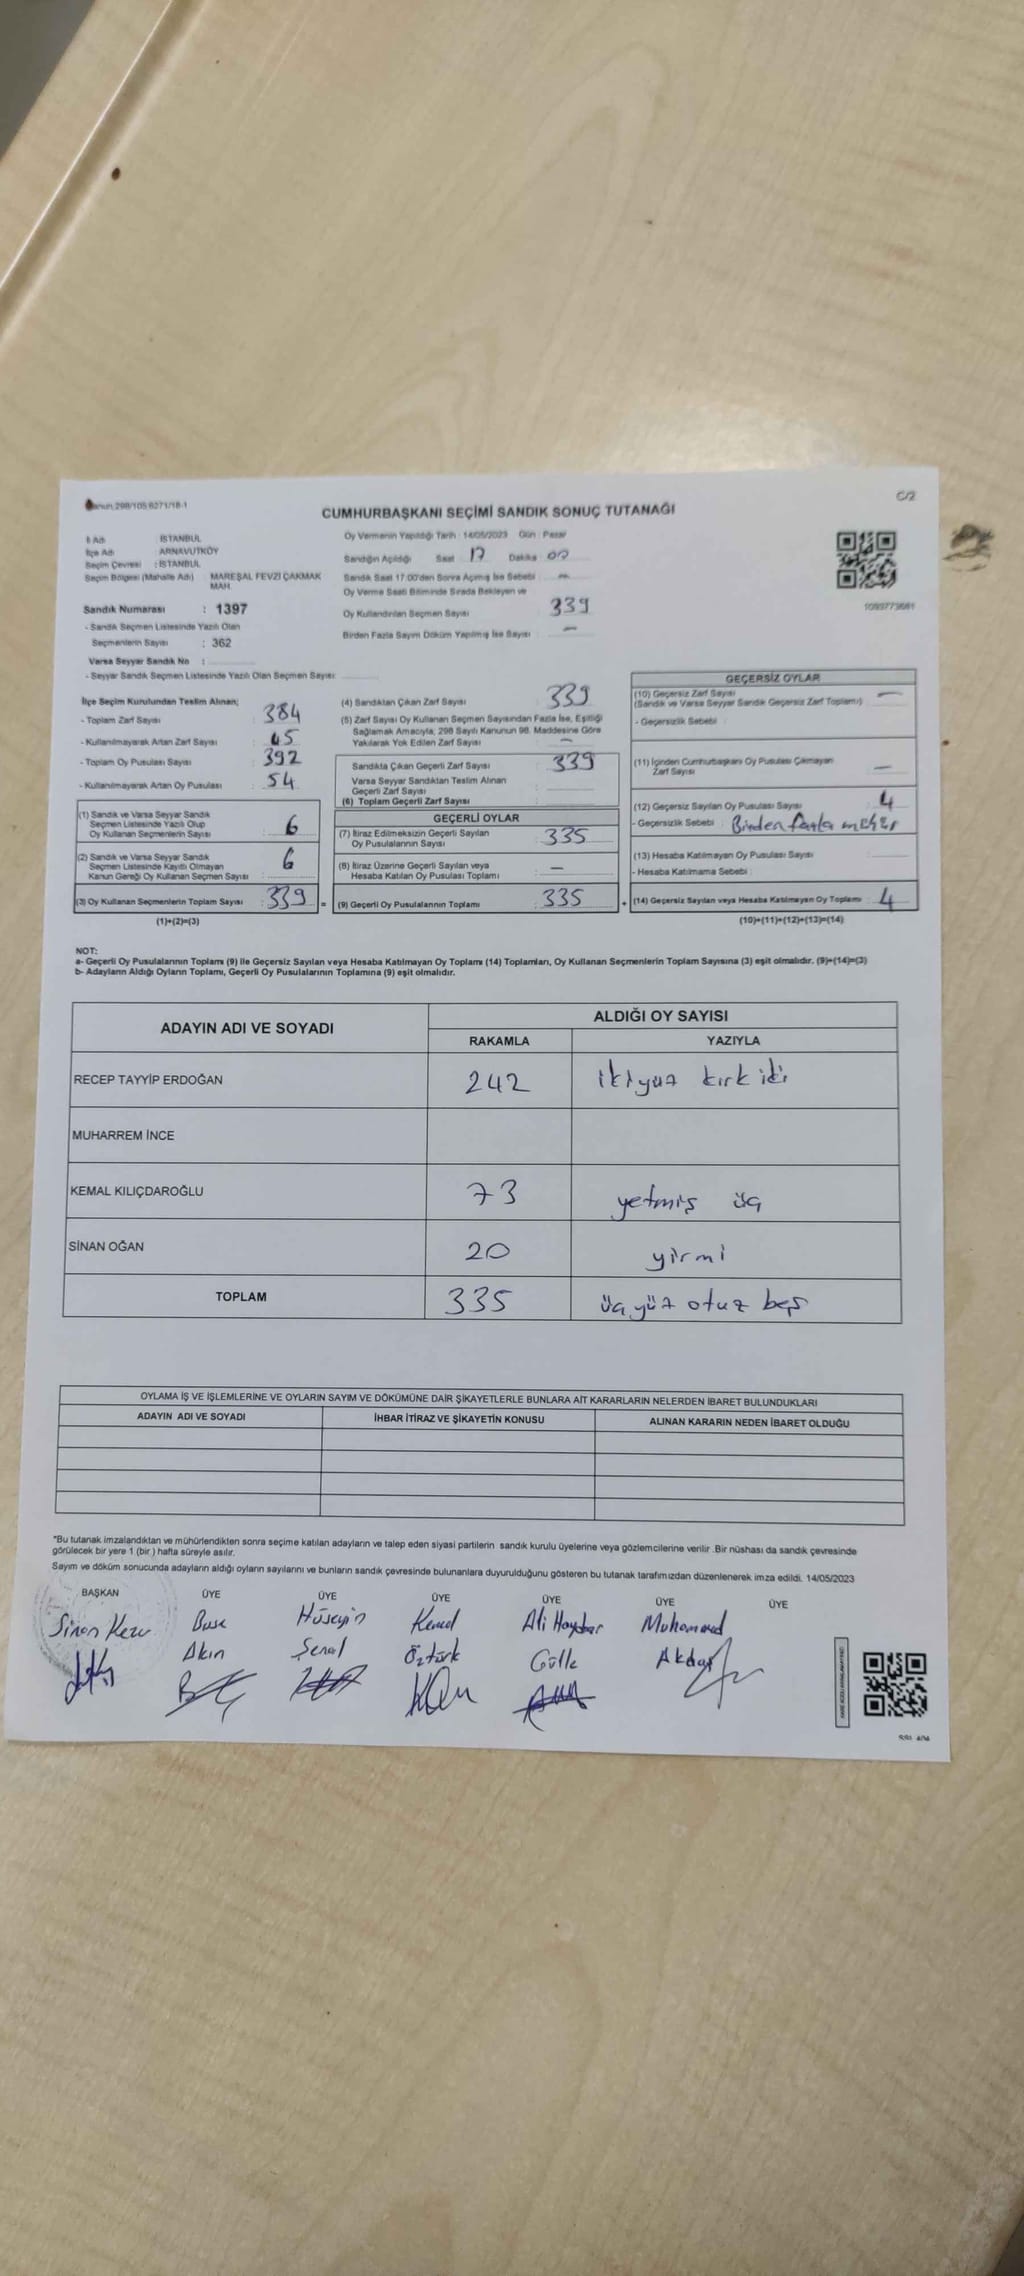 Kanun:298/105,6271/18-1
C/2
CUMHURBAŞKANI SEÇİMİ SANDIK SONUÇ TUTANAĞI
İl Adı : İSTANBUL
İlçe Adı : ARNAVUTKÖY
Seçim Çevresi : İSTANBUL
Seçim Bölgesi (Mahalle Adı) : MAREŞAL FEVZİ ÇAKMAK
MAH.
Sandık Numarası : 1397
- Sandık Seçmen Listesinde Yazılı Olan
Seçmenlerin Sayısı : 362
Varsa Seyyar Sandık No :
- Seyyar Sandık Seçmen Listesinde Yazılı Olan Seçmen Sayısı :
Oy Vermenin Yapıldığı Tarih : 14/05/2023 Gün : Pazar
Sandığın Açıldığı Saat 17 Dakika 00
Sandık Saat 17:00'den Sonra Açılmış İse Sebebi : —
Oy Verme Saati Bitiminde Sırada Bekleyen ve
Oy Kullandırılan Seçmen Sayısı : 339
Birden Fazla Sayım Döküm Yapılmış İse Sayısı : —
İlçe Seçim Kurulundan Teslim Alınan;
- Toplam Zarf Sayısı : 384
- Kullanılmayarak Artan Zarf Sayısı : 45
- Toplam Oy Pusulası Sayısı : 392
- Kullanılmayarak Artan Oy Pusulası : 54
(1) Sandık ve Varsa Seyyar Sandık
Seçmen Listesinde Yazılı Olup
Oy Kullanan Seçmenlerin Sayısı : 6
(2) Sandık ve Varsa Seyyar Sandık
Seçmen Listesinde Kayıtlı Olmayan
Kanun Gereği Oy Kullanan Seçmen Sayısı : 6
(3) Oy Kullanan Seçmenlerin Toplam Sayısı : 339 =
(1)+(2)=(3)
(4) Sandıktan Çıkan Zarf Sayısı : 339
(5) Zarf Sayısı Oy Kullanan Seçmen Sayısından Fazla İse, Eşitliği
Sağlamak Amacıyla, 298 Sayılı Kanunun 98. Maddesine Göre
Yakılarak Yok Edilen Zarf Sayısı : —
Sandıkta Çıkan Geçerli Zarf Sayısı : 339
Varsa Seyyar Sandıktan Teslim Alınan
Geçerli Zarf Sayısı :
(6) Toplam Geçerli Zarf Sayısı :
GEÇERLİ OYLAR
(7) İtiraz Edilmeksizin Geçerli Sayılan
Oy Pusulalarının Sayısı : 335
(8) İtiraz Üzerine Geçerli Sayılan veya
Hesaba Katılan Oy Pusulası Toplamı : —
(9) Geçerli Oy Pusulalarının Toplamı : 335 +
1093773681
GEÇERSİZ OYLAR
(10) Geçersiz Zarf Sayısı : —
(Sandık ve Varsa Seyyar Sandık Geçersiz Zarf Toplamı)
- Geçersizlik Sebebi :
(11) İçinden Cumhurbaşkanı Oy Pusulası Çıkmayan
Zarf Sayısı : —
(12) Geçersiz Sayılan Oy Pusulası Sayısı : 4
- Geçersizlik Sebebi : Birden fazla mühür
(13) Hesaba Katılmayan Oy Pusulası Sayısı :
- Hesaba Katılmama Sebebi :
(14) Geçersiz Sayılan veya Hesaba Katılmayan Oy Toplamı : 4
(10)+(11)+(12)+(13)=(14)
NOT:
a- Geçerli Oy Pusulalarının Toplamı (9) ile Geçersiz Sayılan veya Hesaba Katılmayan Oy Toplamı (14) Toplamları, Oy Kullanan Seçmenlerin Toplam Sayısına (3) eşit olmalıdır. (9)+(14)=(3)
b- Adayların Aldığı Oyların Toplamı, Geçerli Oy Pusulalarının Toplamına (9) eşit olmalıdır.
ADAYIN ADI VE SOYADI
ALDIĞI OY SAYISI
RAKAMLA YAZIYLA
RECEP TAYYİP ERDOĞAN 242 ikiyüz kırk iki
MUHARREM İNCE
KEMAL KILIÇDAROĞLU 73 yetmiş üç
SİNAN OĞAN 20 yirmi
TOPLAM 335 üçyüz otuz beş
OYLAMA İŞ VE İŞLEMLERİNE VE OYLARIN SAYIM VE DÖKÜMÜNE DAİR ŞİKAYETLERLE BUNLARA AİT KARARLARIN NELERDEN İBARET BULUNDUKLARI
ADAYIN ADI VE SOYADI İHBAR İTİRAZ VE ŞİKAYETİN KONUSU ALINAN KARARIN NEDEN İBARET OLDUĞU
*Bu tutanak imzalandıktan ve mühürlendikten sonra seçime katılan adayların ve talep eden siyasi partilerin sandık kurulu üyelerine veya gözlemcilerine verilir. Bir nüshası da sandık çevresinde
görülecek bir yere 1 (bir ) hafta süreyle asılır.
Sayım ve döküm sonucunda adayların aldığı oyların sayılarını ve bunların sandık çevresinde bulunanlara duyurulduğunu gösteren bu tutanak tarafımızdan düzenlenerek imza edildi. 14/05/2023
BAŞKAN ÜYE ÜYE ÜYE ÜYE ÜYE ÜYE
Sinan Buse Hüseyin Kemal Ali Haydar Muhammed
Akın Şenal Öztürk Gülle Akdağ